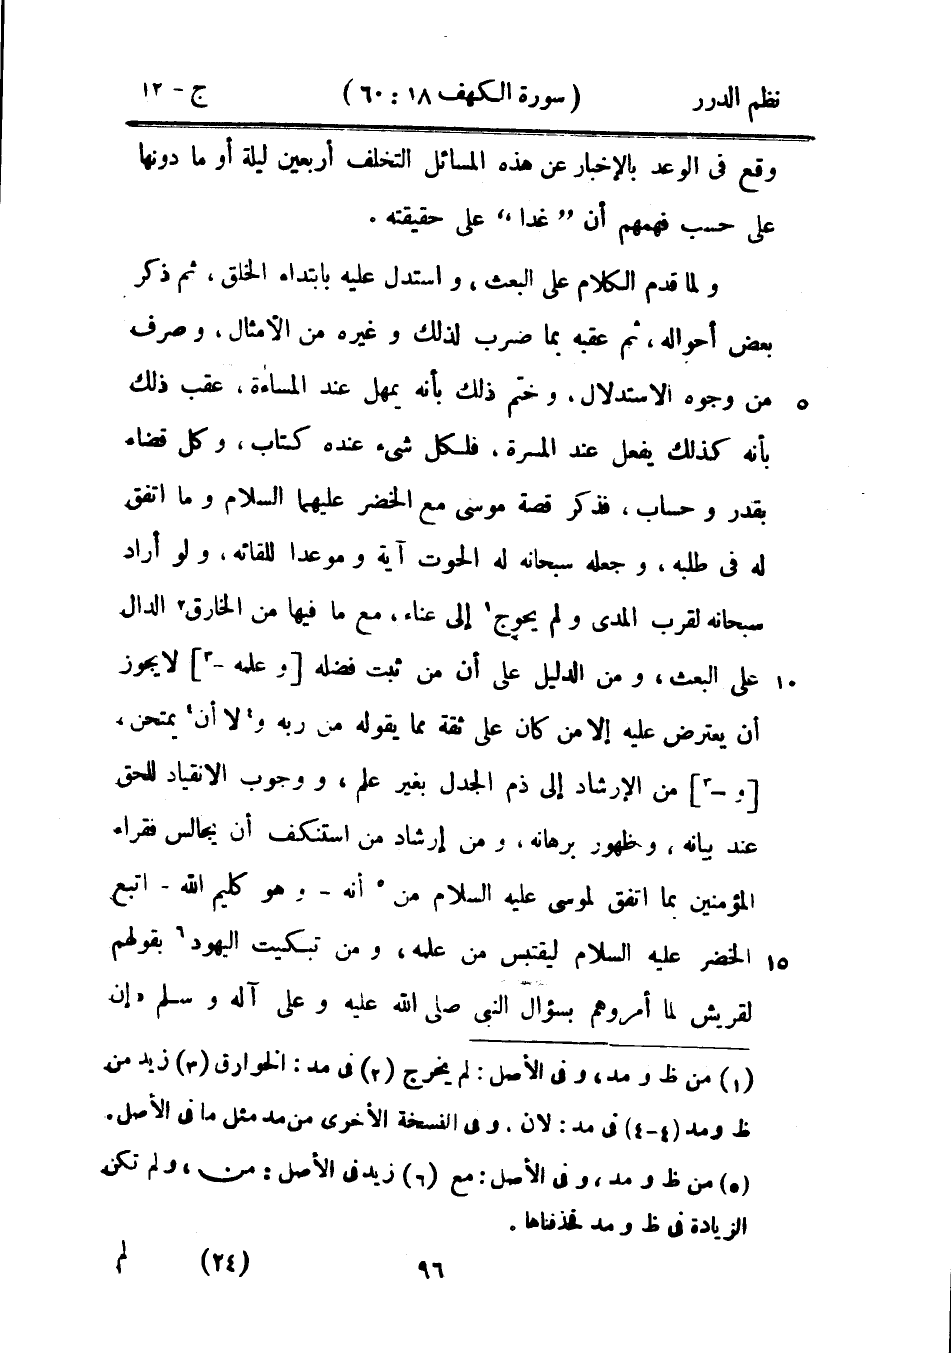 نظم الدرر ( سورة الكهف ١٨ : ٦٠ ) ج - ١٢
وقع فى الوعد بالإخبار عن هذه المسائل التخلف أربعين ليلة أو ما دونها
على حسب فهمهم أن ” غدا “ على حقيقته .
و لما قدم الكلام على البعث ، و استدل عليه بابتداء الخلق ، ثم ذكر
بعض أحواله ، ثم عقبه بما ضرب لذلك و غيره من الأمثال ، و صرف
من وجوه الاستدلال ، و ختم ذلك بأنه يمهل عند المساءة ، عقب ذلك ٥
بأنه كذلك يفعل عند المسرة ، فلكل شىء عنده كتاب ، و كل قضاء
بقدر و حساب ، فذكر قصة موسى مع الخضر عليهما السلام و ما اتفق
له فى طلبه ، و جعله سبحانه له الحوت آية و موعدا للقائه ، و لو أراد
سبحانه لقرب المدى و لم يحوج١ إلى عناء ، مع ما فيها من الخارق٢ الدال
على البعث ، و من الدليل على أن من ثبت فضله [ و علمه -٣ ] لا يجوز ١٠
أن يعترض عليه إلا من كان على ثقة مما يقوله من ربه و٤ لا أن٤ يمتحن ،
[ و -٣ ] من الإرشاد إلى ذم الجدل بغير علم ، و وجوب الانقياد للحق
عند بيانه ، و ظهور برهانه ، و من إرشاد من استنكف أن يجالس فقراء
المؤمنين بما اتفق لموسى عليه السلام من ٥ أنه - و هو كليم الله - اتبع
الخضر عليه السلام ليقتبس من علمه ، و من تبكيت اليهود٦ بقولهم ١٥
لقريش لما أمروهم بسؤال النبى صلى الله عليه و على آله و سلم « إن
(١) من ظ و مد ، و فى الأصل : لم يخرج (٢) فى مد : الخوارق (٣) زيد من
ظ ومد (٤-٤) فى مد : لان . و فى النسخة الأخرى من مد مثل ما فى الأصل .
(٥) من ظ و مد ، و فى الأصل : مع (٦) زيد فى الأصل : من ، و لم تكن
الزيادة فى ظ و مد فحذفناها .
٩٦ (٢٤) لم